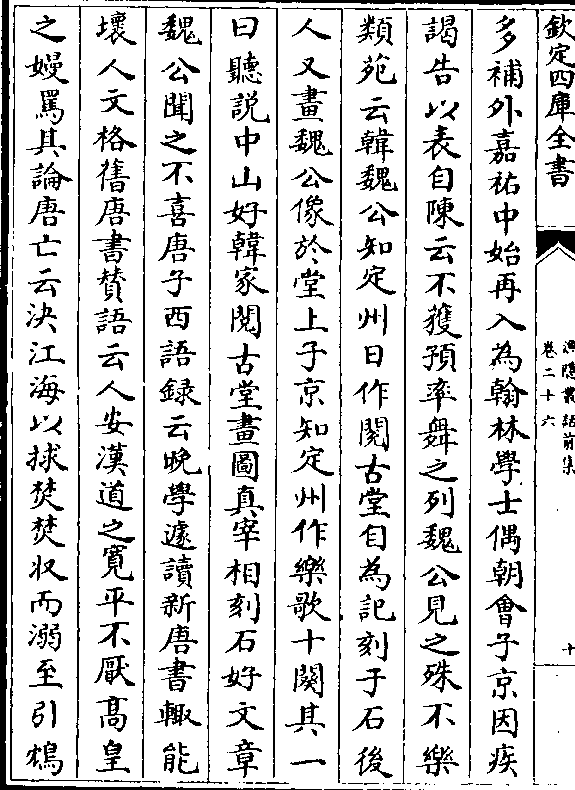 欽定四庫全書
漁隱叢話前集
卷二十六
十
多補外嘉祐中始再入為翰林學士偶朝會子京因疾
謁告以表自陳云不獲預率舞之列魏公見之殊不樂
類苑云韓魏公知定州日作閱古堂自為記刻于石後
人又畫魏公像於堂上子京知定州作樂歌十闋其一
曰聽説中山好韓家閲古堂畫圖真宰相刻石好文章
魏公聞之不喜唐子西語録云晚學遽讀新唐書輙能
壞人文格舊唐書賛語云人安漢道之寛平不厭髙皇
之嫚罵其論唐亡云決江海以救焚焚收而溺至引鴆